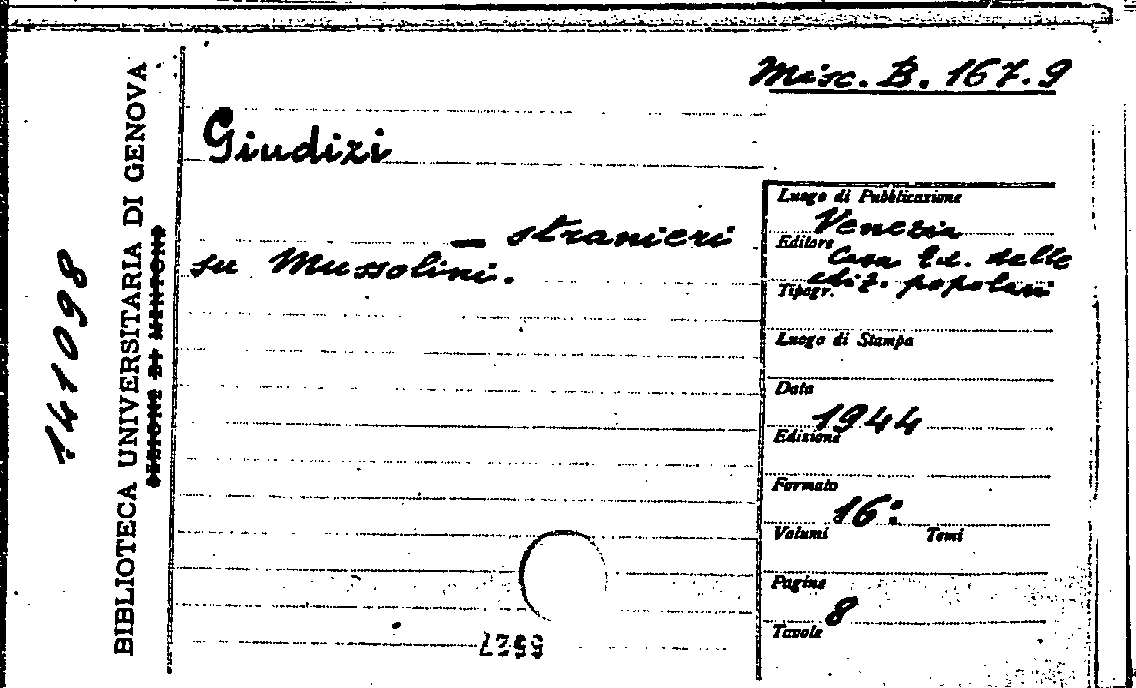 Misc. B. 167.9
Giudizi
— stranieri
su Mussolini.
Luogo di Pubblicazione
Venezia
Editore
Casa Ed. delle
ediz. popolari
Tipogr.
Luogo di Stampa
Data
1944
Edizione
Formato
16°
Volumi Tomi
Pagine
8
Tavole
141098
BIBLIOTECA UNIVERSITARIA DI GENOVA